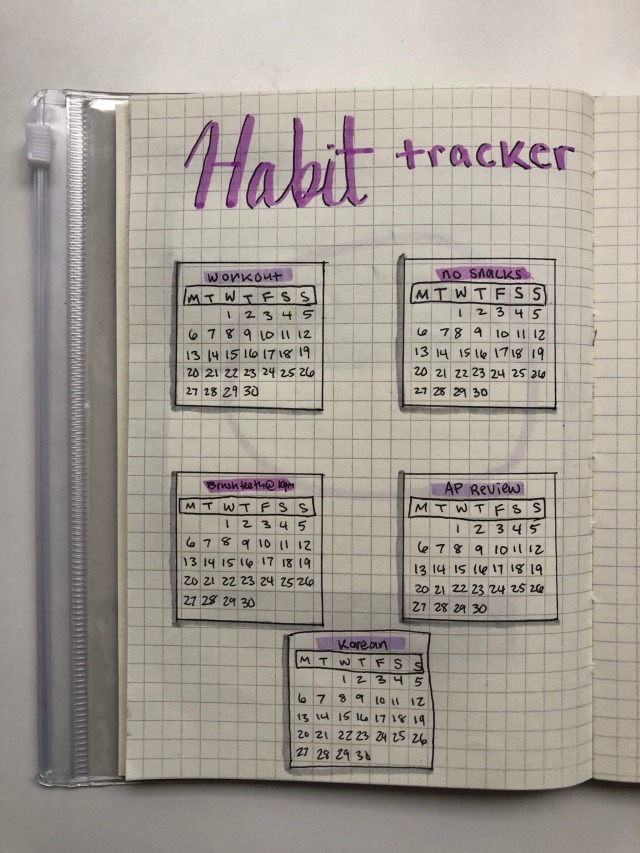 Habit tracker
workout
M T W T F S S
1 2 3 4 5
6 7 8 9 10 11 12
13 14 15 16 17 18 19
20 21 22 23 24 25 26
27 28 29 30
no snacks
M T W T F S S
1 2 3 4 5
6 7 8 9 10 11 12
13 14 15 16 17 18 19
20 21 22 23 24 25 26
27 28 29 30
Brush teeth@ 10pm
M T W T F S S
1 2 3 4 5
6 7 8 9 10 11 12
13 14 15 16 17 18 19
20 21 22 23 24 25 26
27 28 29 30
AP Review
M T W T F S S
1 2 3 4 5
6 7 8 9 10 11 12
13 14 15 16 17 18 19
20 21 22 23 24 25 26
27 28 29 30
Korean
M T W T F S S
1 2 3 4 5
6 7 8 9 10 11 12
13 14 15 16 17 18 19
20 21 22 23 24 25 26
27 28 29 30